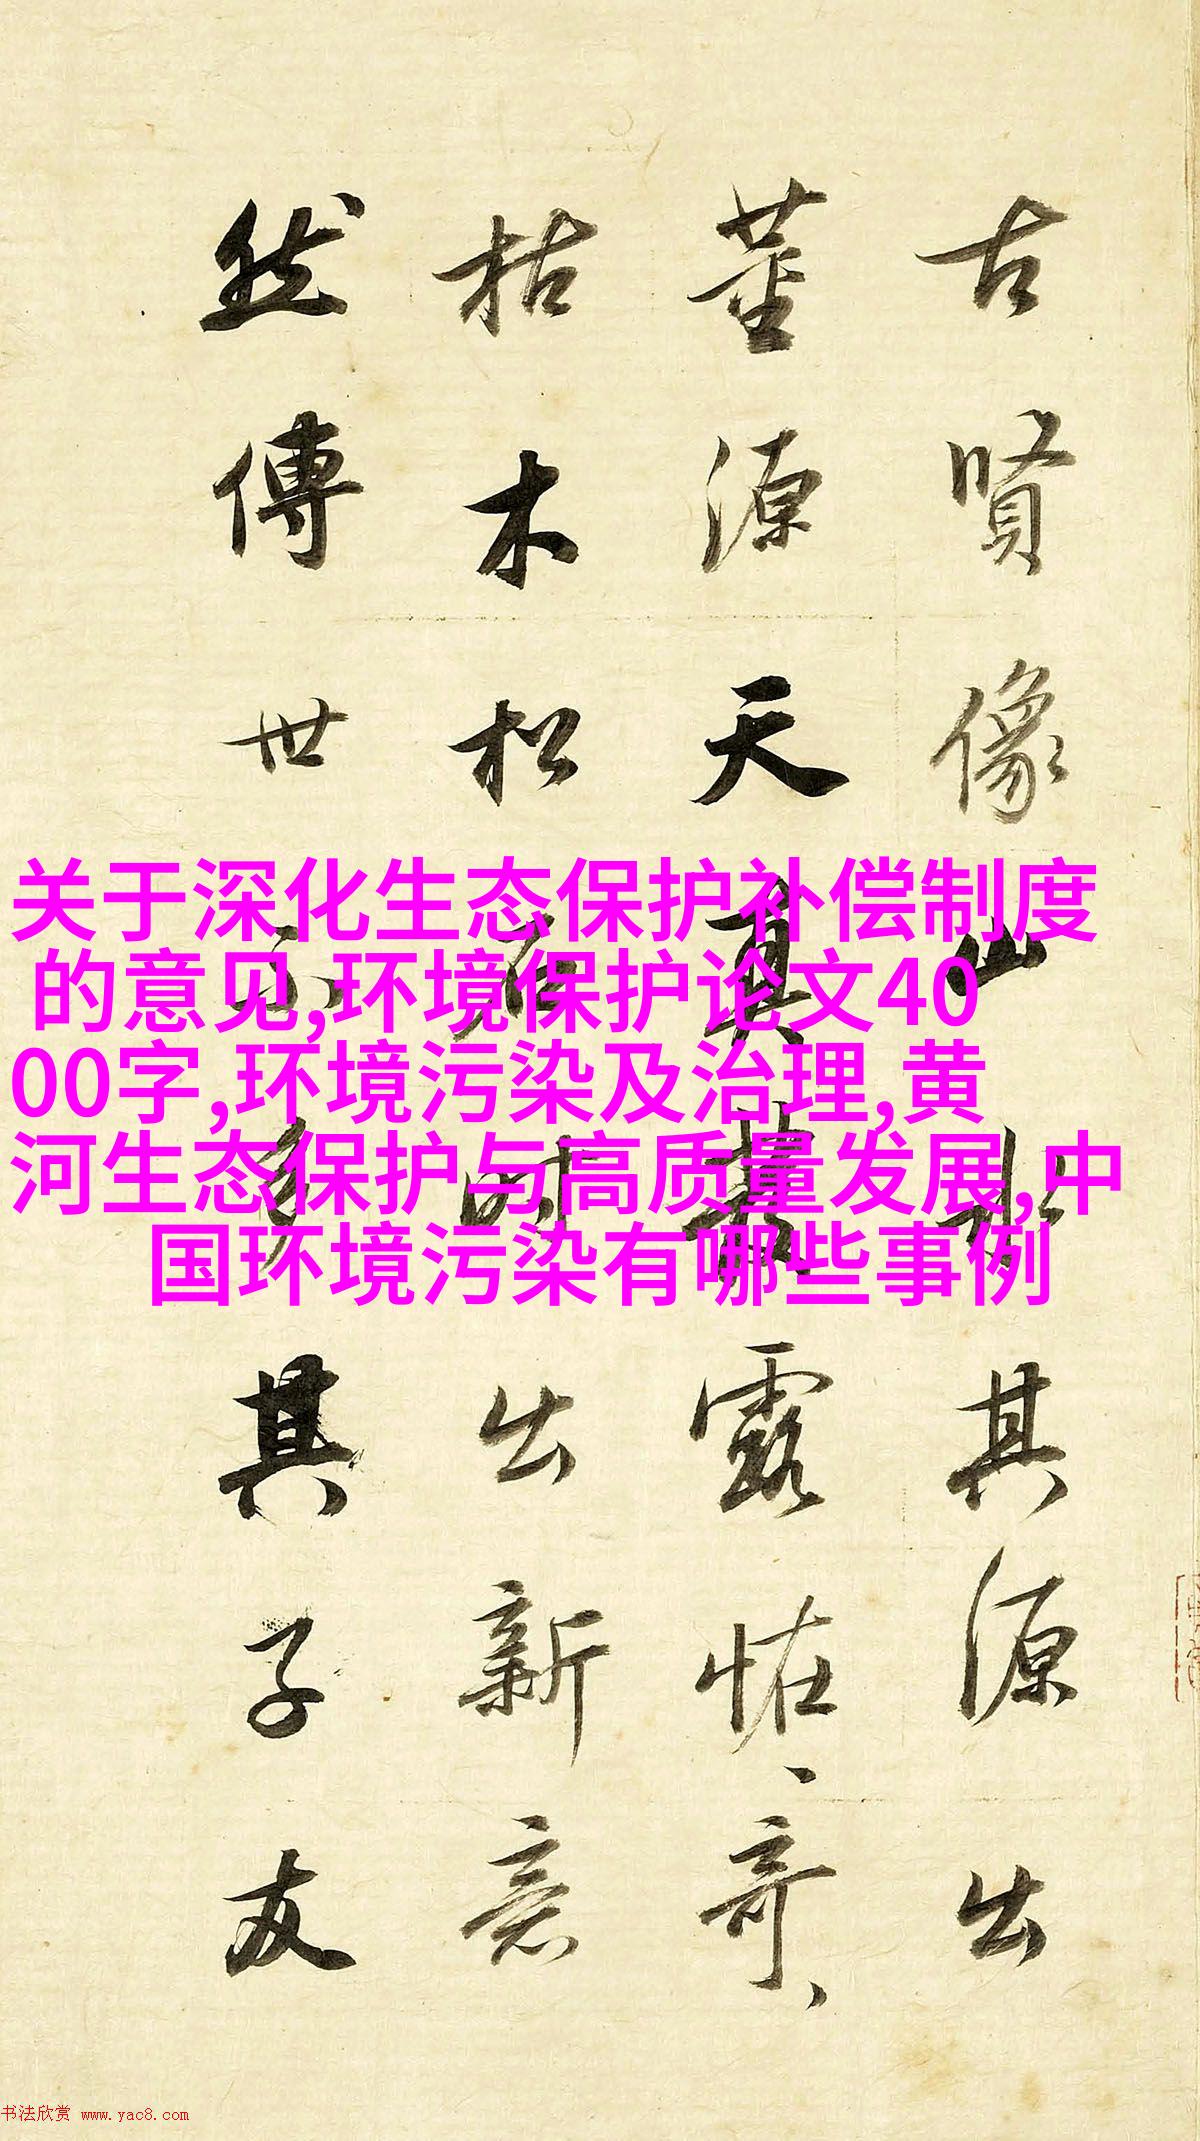 古賢像山水其源出
董源天真發露恠、奇、
枯木松石時出新意
然傳世不多其子友
关于深化生态保护补偿制度
的意见,环境保护论文40
00字,环境污染及治理,黄
河生态保护与高质量发展,中
国环境污染有哪些事例
书法欣赏 www.yac8.com